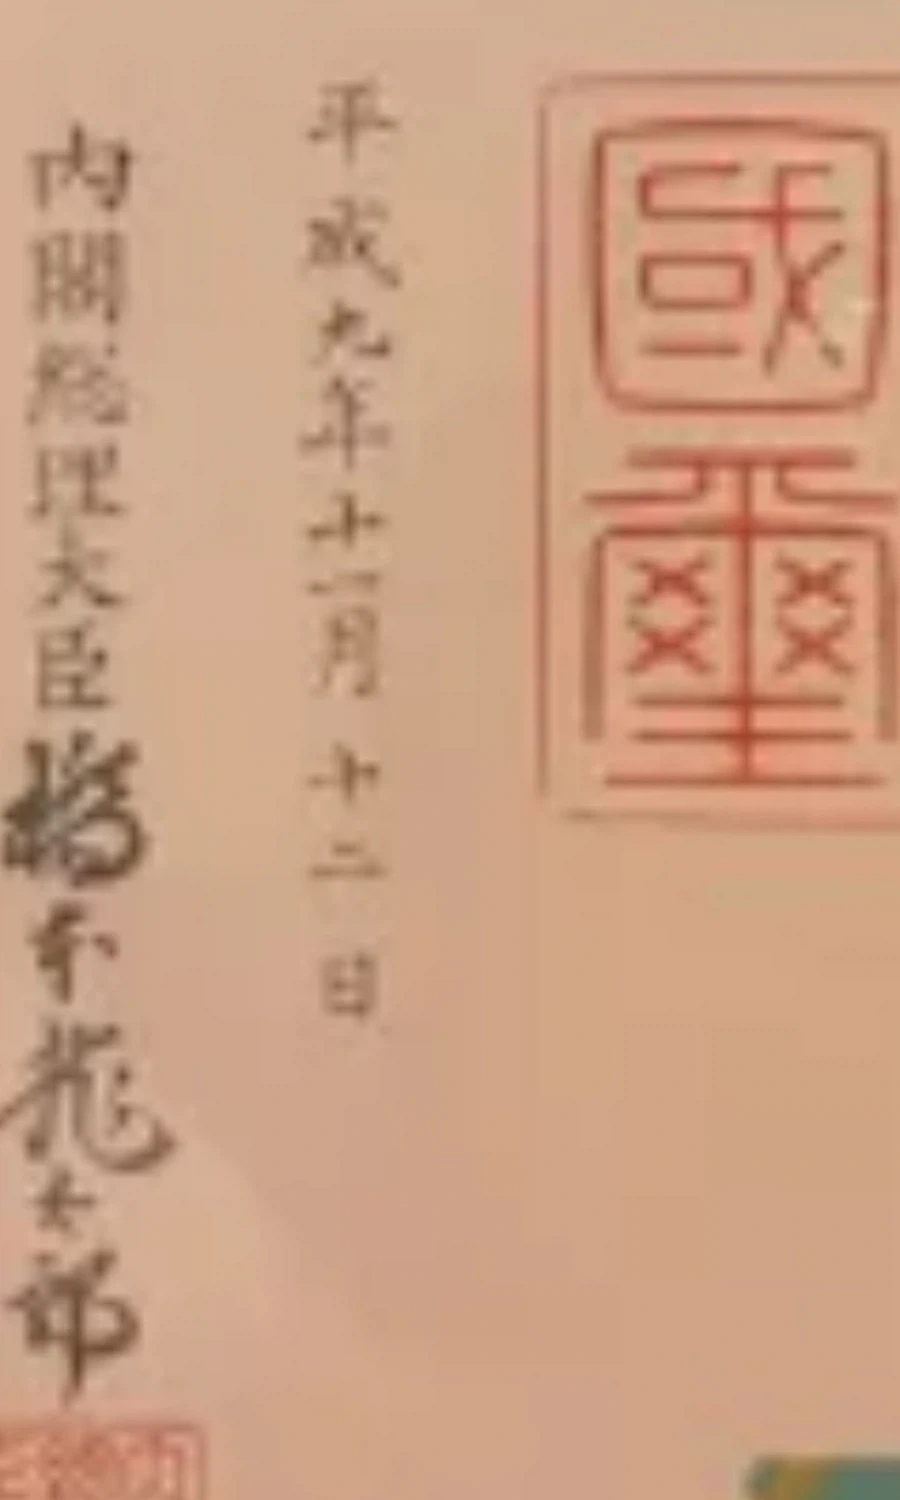 國璽
平成九年十一月十二日
内閣総理大臣橋本龍太郎